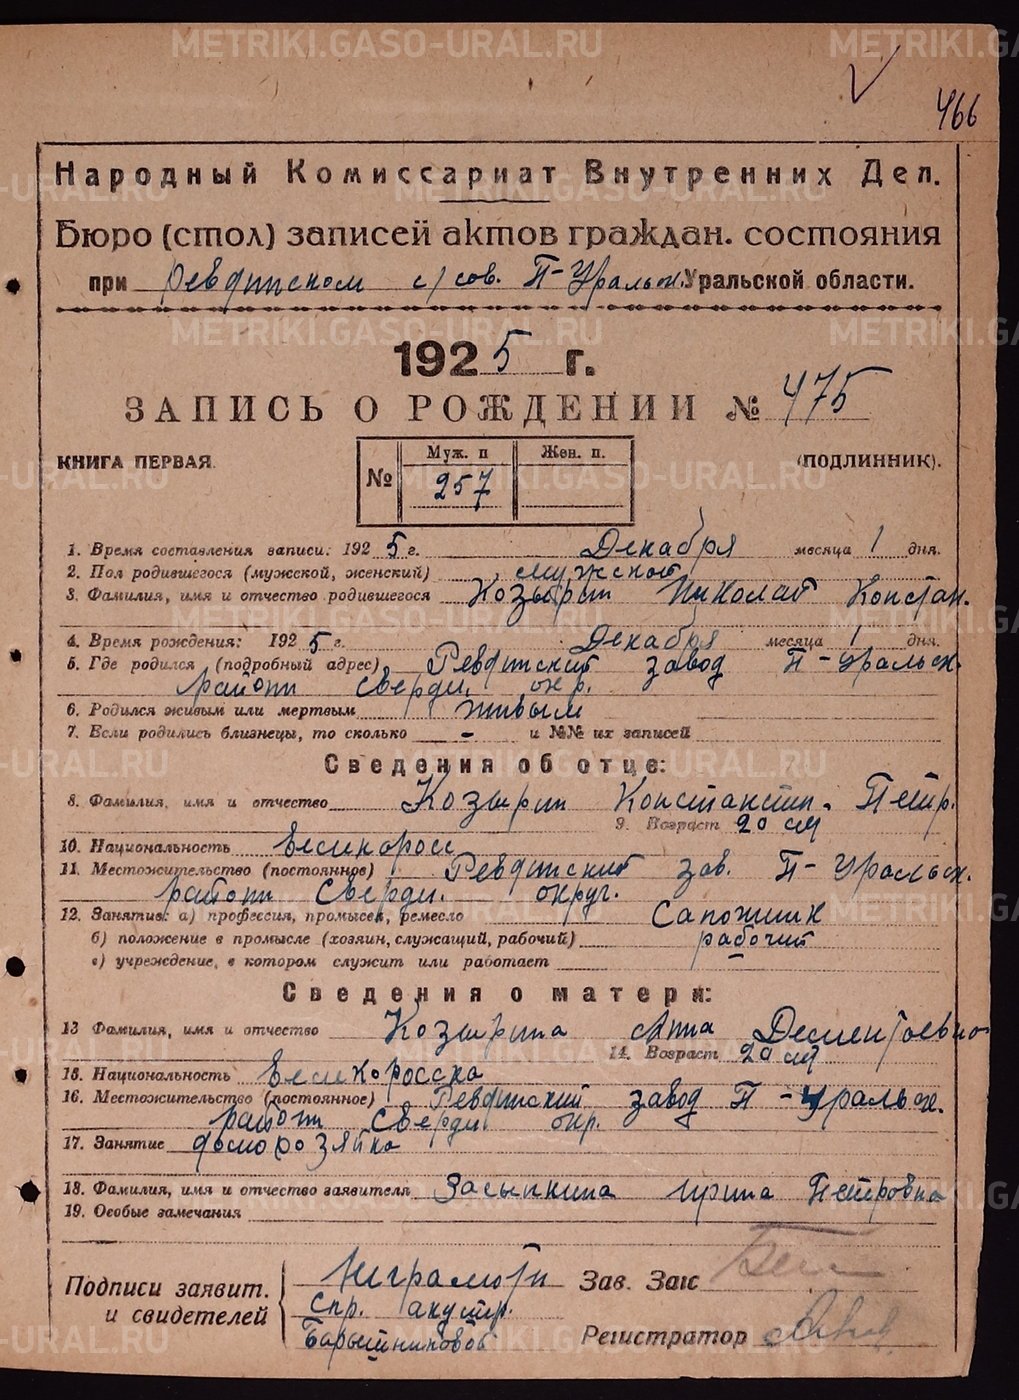 466
Народный Комиссариат Внутренних Дел.
Бюро (стол) записей актов граждан. состояния
при Ревдинском с/сов. П-Уральск. Уральской области.
1925 г.
ЗАПИСЬ О РОЖДЕНИИ № 475
КНИГА ПЕРВАЯ.
(ПОДЛИННИК).
№ Муж. п Жен. п.
257
1. Время составления записи: 1925 г. Декабря месяца 1 дня.
2. Пол родившегося (мужской, женский) мужской
3. Фамилия, имя и отчество родившегося Козырин Николай Констан.
4. Время рождения: 1925 г. Декабря месяца 1 дня.
5. Где родился (подробный адрес) Ревдинский завод П-Уральск.
район Свердл. окр.
6. Родился живым или мертвым живым
7. Если родились близнецы, то сколько - и №№ их записей
Сведения об отце:
8. Фамилия, имя и отчество Козырин Константин. Петр.
9. Возраст 20 лет
10. Национальность великоросс
11. Местожительство (постоянное) Ревдинский зав. П-Уральск.
район Свердл. округ.
12. Занятия: а) профессия, промысел, ремесло сапожник
б) положение в промысле (хозяин, служащий, рабочий) рабочий
в) учреждение, в котором служит или работает
Сведения о матери:
13 Фамилия, имя и отчество Козырина Анна Дементьевна
14. Возраст 20 лет
15. Национальность великоросска
16. Местожительство (постоянное) Ревдинский завод П-Уральск.
район Свердл окр.
17. Занятие домохозяйка
18. Фамилия, имя и отчество заявителя Засыпкина Ирина Петровна
19. Особые замечания
Подписи заявит. и свидетелей
Неграмотн
Спр. акушр.
Барышниковой
Зав. Загс
Регистратор
METRIKI.GASO-URAL.RU